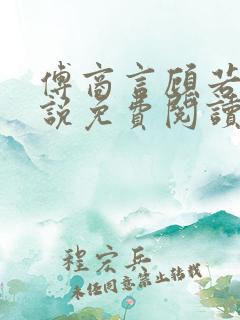 傅商言顾若
説免費閱讀
程宏兵
未经同意禁止转载